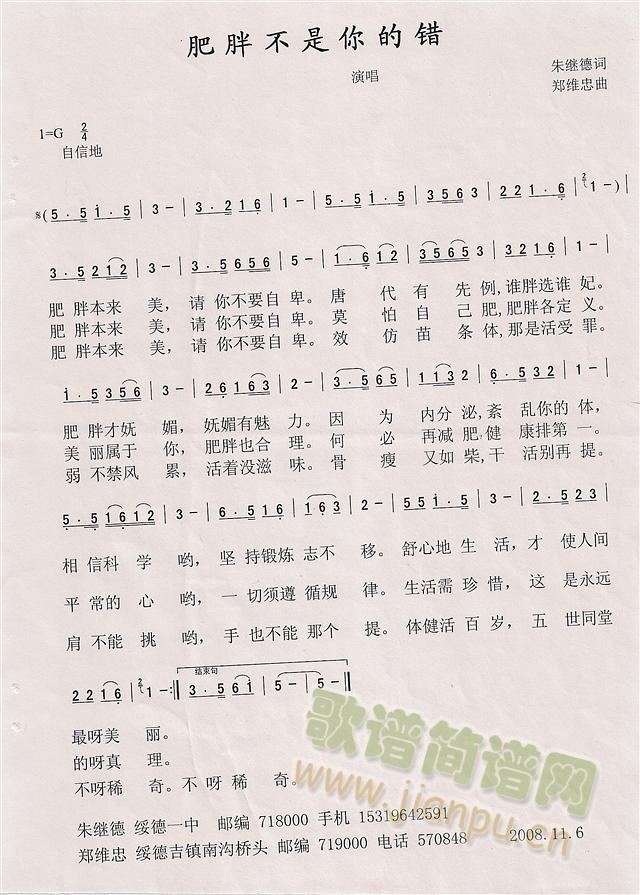 肥胖不是你的错
演唱
朱继德词
郑维忠曲
1=G 2/4
自信地
𝄋(5·5i·5|3-|3·216|1-|5·5i·5|3563|221·6|1-)|
3·5212|3-|3·5656|5-|1·612|3·563|5·532|1-|
肥胖本来 美，请你不要自卑。唐 代 有 先例,谁胖选谁妃。
肥胖本来 美，请你不要自卑。莫 怕 自 己肥,肥胖各定义。
肥胖本来 美，请你不要自卑。效 仿 苗 条体,那是活受罪。
i·5356|3-|26163|2-|3·565|1132|6·532|1-|
肥 胖才妩 媚，妩媚有魅 力。因 为 内分 泌,紊 乱你的 体，
美 丽属于 你，肥胖也合 理。何 必 再减 肥,健 康排第 一。
弱 不禁风 累，活着没滋 味。骨 瘦 又如 柴,干 活别再 提。
5·51612|3-|6·516|163|2-|55i·5|3-|2·523|
相 信科 学 哟，坚 持锻炼 志不 移。舒心地 生 活，才 使人间
平 常的 心 哟，一 切须遵 循规 律。生活需 珍 惜，这 是永远
肩 不能 挑 哟，手 也不能 那个 提。体健活 百 岁，五 世同堂
2216|1-:‖3·56i|5-|5-‖
结束句
最呀美 丽。
的呀真 理。
不呀稀 奇。不 呀 稀 奇。
歌谱简谱网
www.jianpu.cn
朱继德 绥德一中 邮编 718000 手机 15319642591
郑维忠 绥德吉镇南沟桥头 邮编 719000 电话 570848 2008.11.6